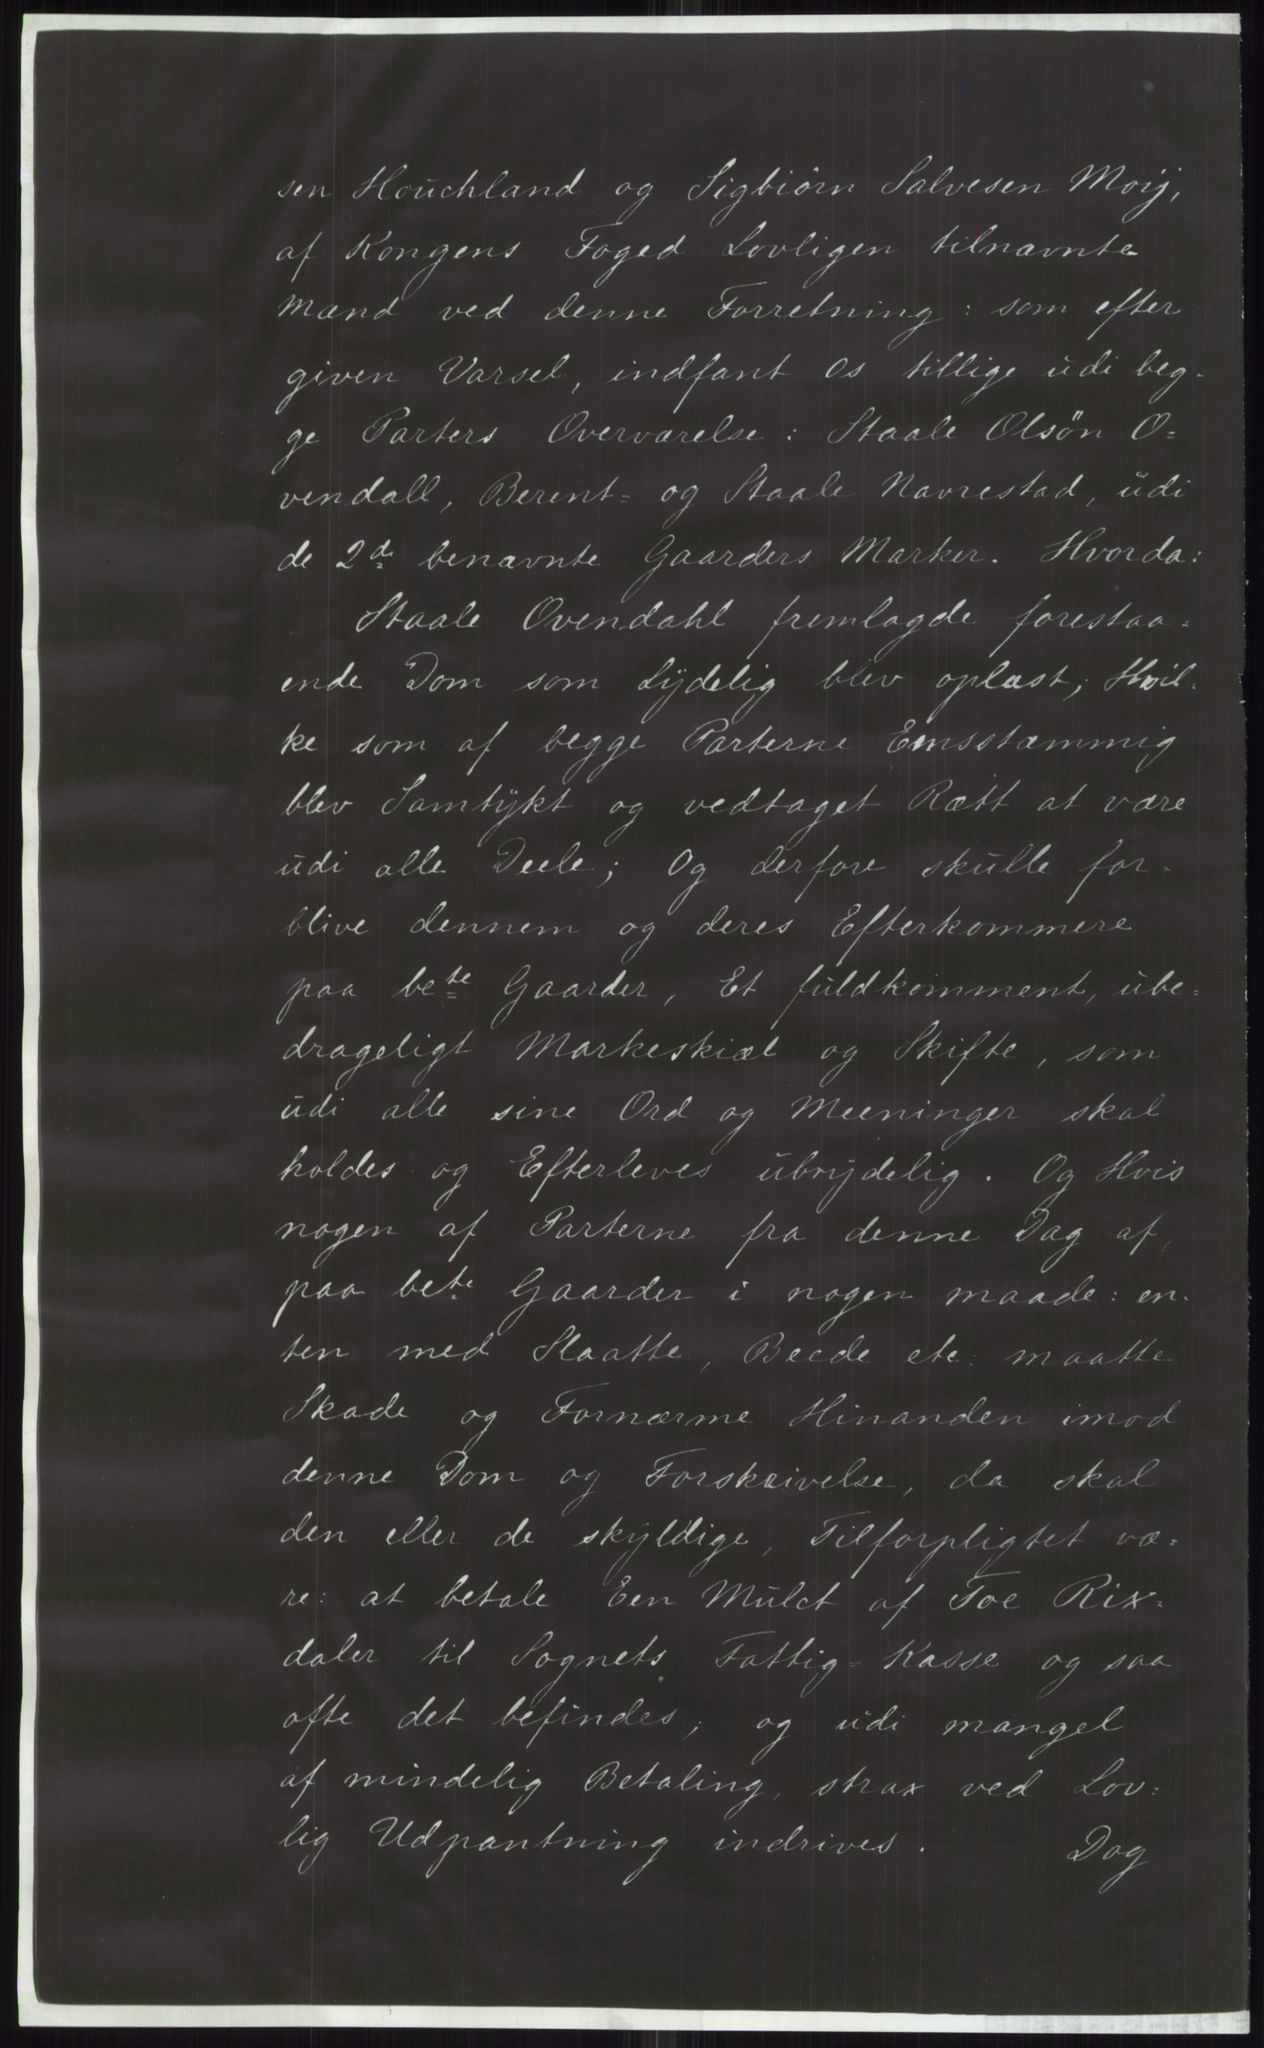 sen Houchland og Sigbiörn Salvesen Moij,
af Kongens Foged Lovligen tilnævnte
Mænd ved denne Forretning: som efter
given Varsel, indfant Os tillige udi beg-
ge Parters Overværelse: Staale Olsön O=
vendall, Berent= og Staale Navrestad, udi
de 2de benævnte Gaarders Marker. Hvorda:
Staale Ovendahl fremlagde forestaa-
ende Dom som Lydelig blev oplæst; Hvil-
ke som af begge Parterne Eensstæmmig
blev Samtykt og vedtaget Rætt at være
udi alle Deele; Og derfore skulle for-
blive dennem og deres Efterkommere
paa bete Gaarder, Et fuldkomment, ube=
drageligt Markeskiæl og Skifte, som
udi alle sine Ord og Meeninger skal
holdes og Efterleves ubrijdelig. Og Hvis
nogen af Parterne fra denne Dag af,
paa bete Gaarder i nogen maade: en-
ten med Slaatte, Beede etc: maatte
Skade og Fornærme Hinanden imod
denne Dom og Forskrivelse, da skal
den eller de skyldige, Tilforpligtet væ=
re: at betale Een Mulct af Toe Rix=
daler til Sognets Fattig=Kasse og saa
ofte det befindes; og udi mangel
af mindelig Betaling, strax ved Lov=
lig Udpantning indrives. Dog